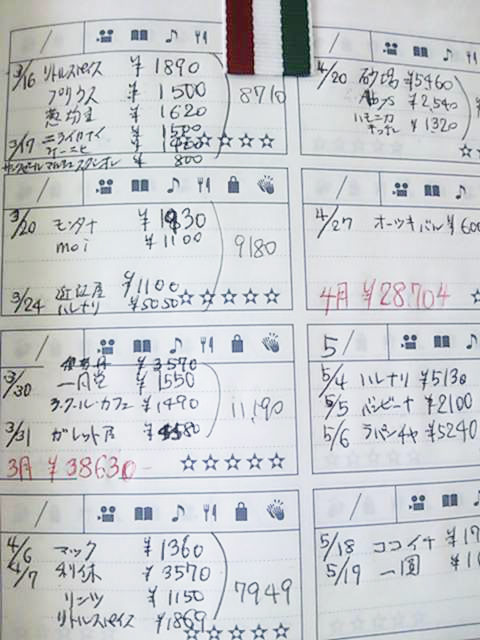 3/16 リトルスパイス ¥1890
プリウス ¥1500
葱坊主 ¥1620
8710
3/17 ニライカナイ ¥1500
¥800
3/20 モンタナ ¥1930
moi ¥1100
9180
¥1100
3/24 近江屋
ハレナリ ¥5050
¥3570
3/30 一円堂 ¥1550
ラ・クール・カフェ ¥1490
11,190
3/31 ガレット屋
3月 ¥38630-
4/6 マック ¥1360
4/7 利休 ¥3570
リーンツ ¥1150
リトルスパイス ¥1869
7949
4/20 砂場 ¥5460
¥2,540
ハモニカ
キッチン ¥1320
4/27 オーツキパル ¥600
4月 ¥28704
5/
5/4 ハレナリ ¥5130
5/5 バンビーナ ¥2100
5/6 ラパンチャ ¥5240
5/18 ココイチ
5/19 一圓